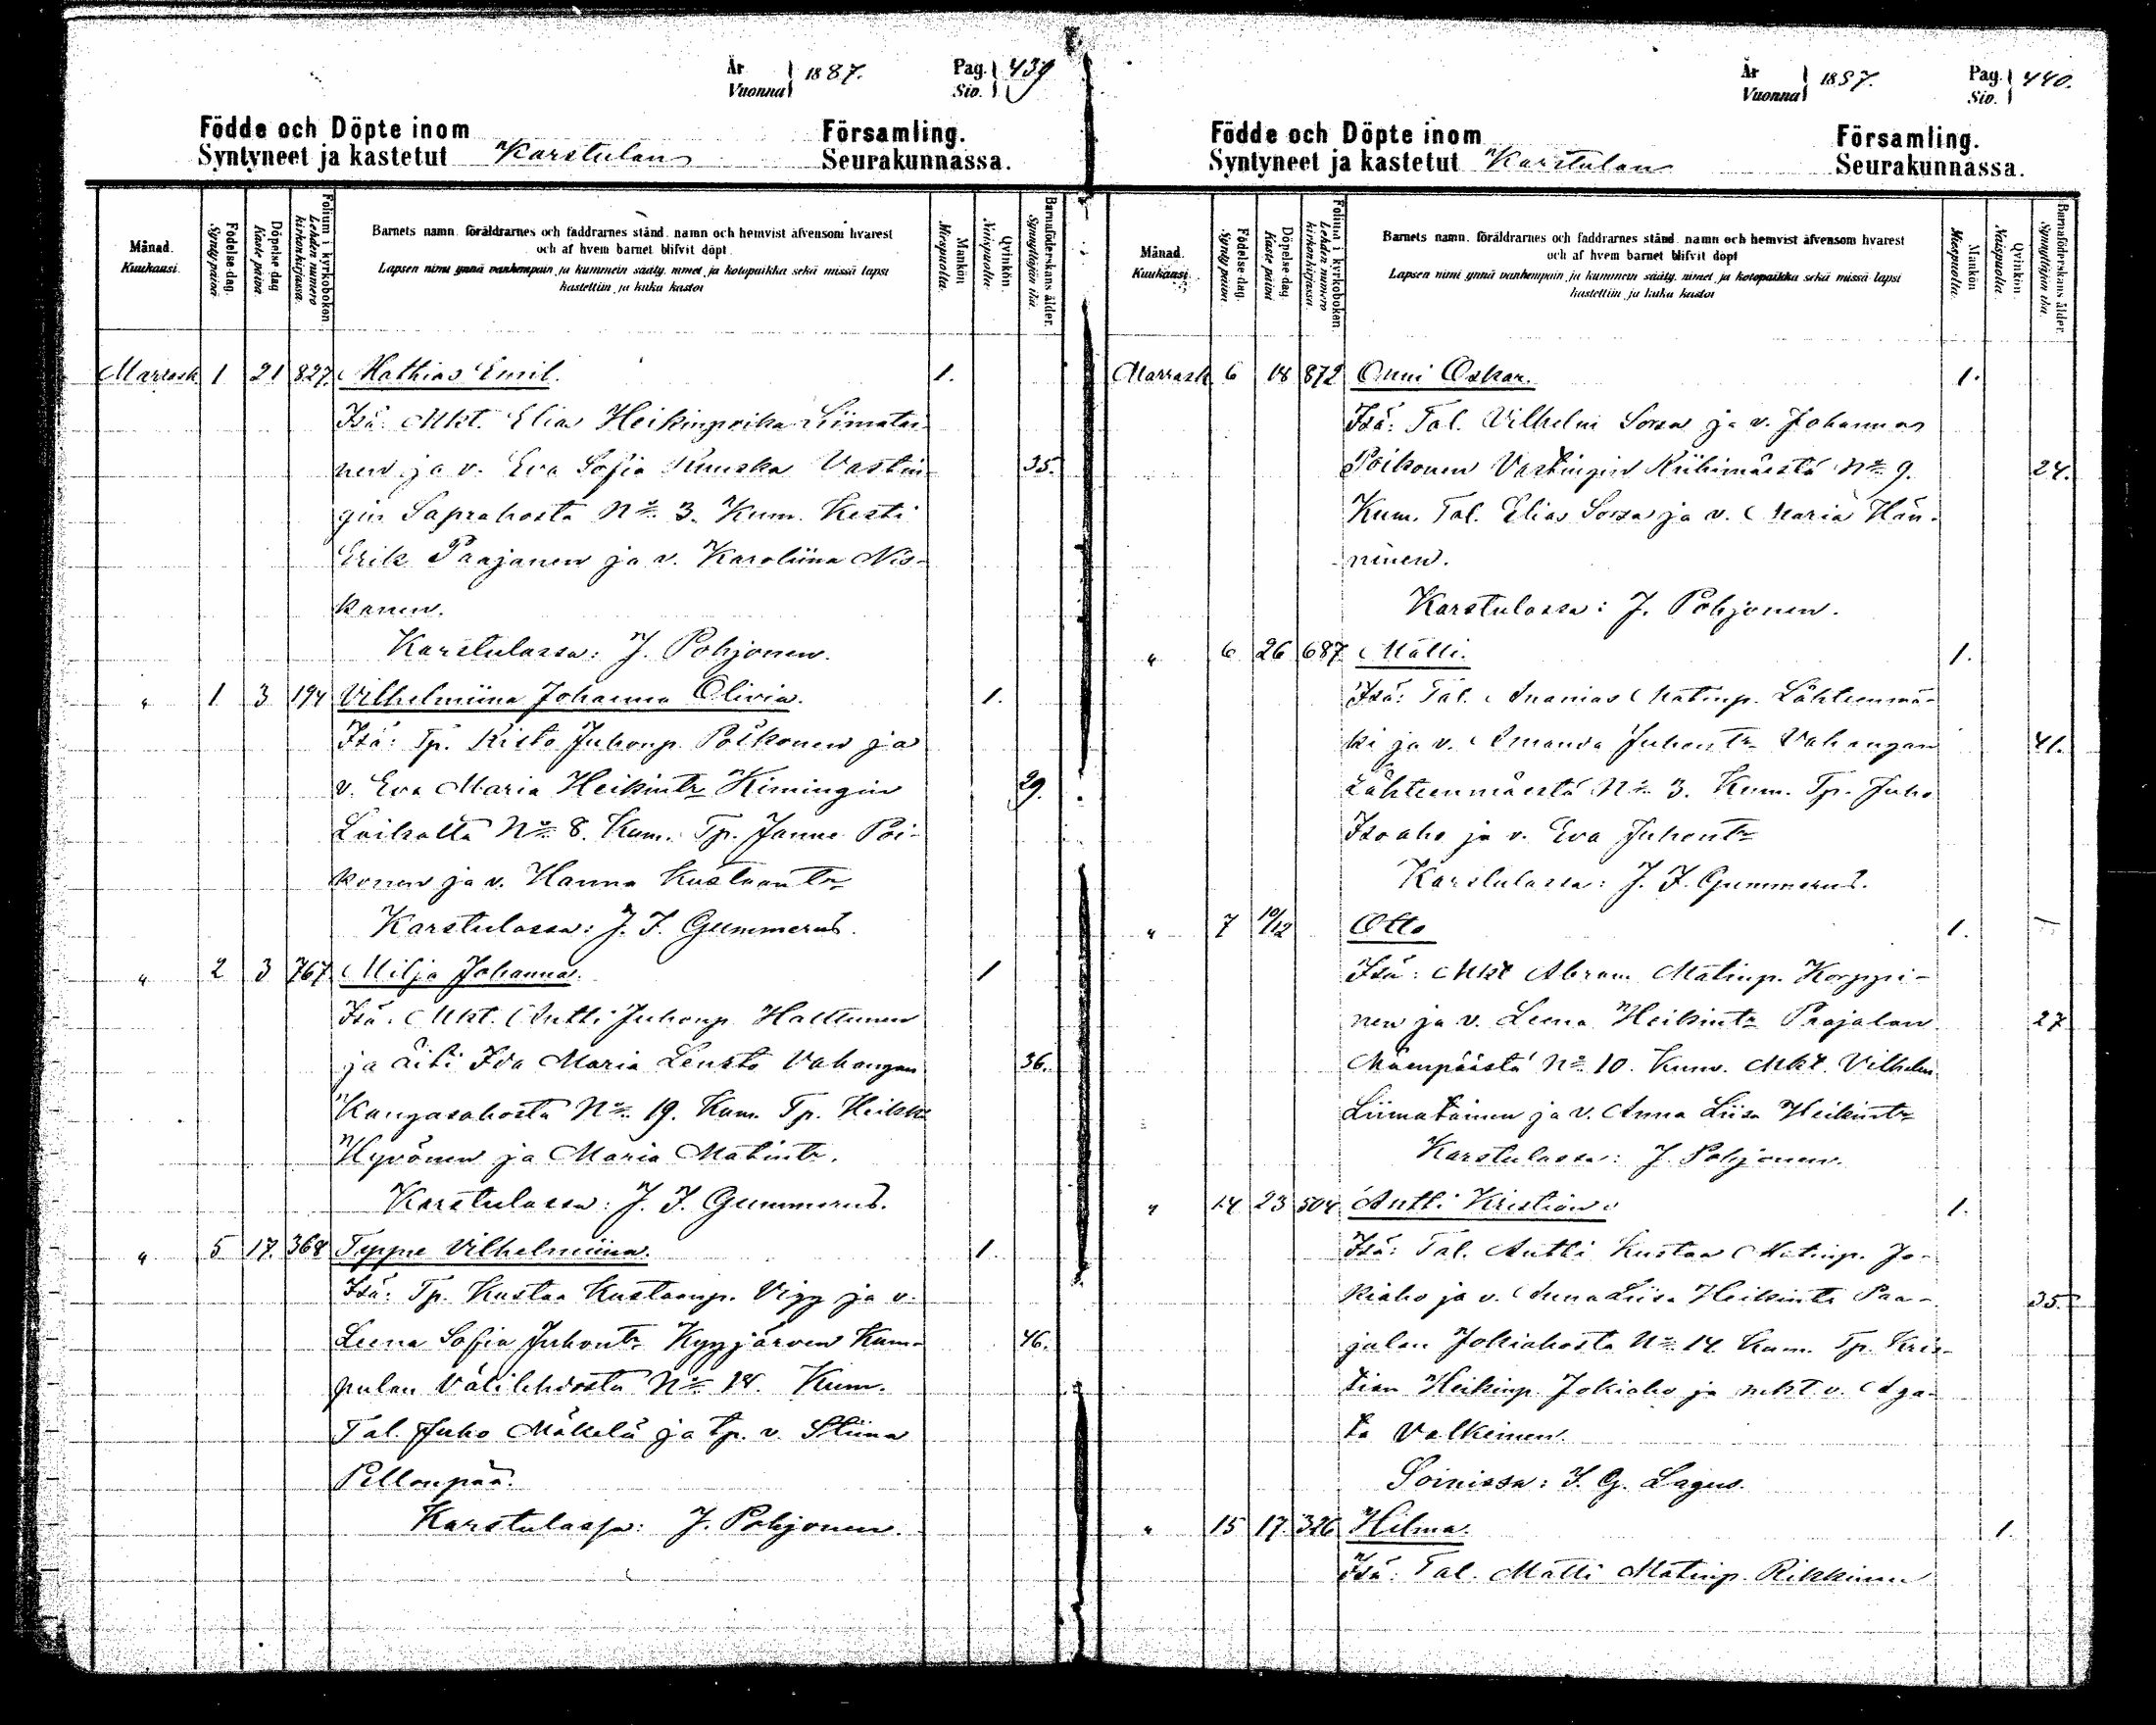 År
Vuonna
1887.
Pag.
Siv.
439
Födde och Döpte inom
Syntyneet ja kastetut Karstulan
Församling.
Seurakunnassa.
Månad.
Kuukausi.
Födelse dag.
Synty päivä
Döpelse dag
Kaste päivä
Folium i kyrkoboken
Lehden numero kirkonkirjassa.
Barnets namn. föräldrarnes och faddrarnes stånd. namn och hemvist äfvensom hvarest
och af hvem barnet blifvit döpt.
Lapsen nimi ynnä vanhempain ja kummein sääty. nimet ja kotopaikka sekä missä lapsi
kastettiin ja kuka kastoi
Mankön
Miespuolia.
Qvinkön.
Naispuolia.
Barnaföderskans ålder.
Synnyttäjän ikä.
Marrask 1 21 827. Mathias Emil. 1.
Isä: Mkt. Elias Heikinpoika Liimatai-
nen ja v. Eva Sofia Ruuska Vastin- 35.
gin Saprahosta No 3. Kum. Kesti
Erik Paajanen ja v. Karoliina Nis-
kanen.
Karstulassa: J. Pohjonen.
" 1 3 194 Vilhelmiina Johanna Olivia. 1.
Isä: Tp. Risto Juhonp. Poikonen ja
v. Eva Maria Heikintr Kimingin 29.
Loikalta No 8. Kum. Tp. Janne Poi-
konen ja v. Hanna Kustaantr
Karstulassa: J. F. Gummerus.
" 2 3 767 Milja Johanna. 1
Isä: Mkt. Antti Juhonp. Halttunen
ja äiti Ida Maria Leusto Vahangan 36.
Kangasahosta No 19. Kum. Tp. Heikki
Hyvönen ja Maria Matintr.
Karstulassa: J. F. Gummerus.
" 5 17. 368 Teppe Vilhelmiina. 1.
Isä: Tp. Kustaa Kustaanp. Vigg ja v.
Leena Sofia Juhontr Kyyjärven Kum- 46.
pulan Välilehdosta No 18. Kum.
Tal. Juho Mäkelä ja tp. v. Stiina
Pellonpää.
Karstulassa: J. Pohjonen.
År
Vuonna
1887.
Pag.
Siv.
440.
Födde och Döpte inom
Syntyneet ja kastetut Karstulan
Församling.
Seurakunnassa.
Månad.
Kuukausi.
Födelse dag.
Synty päivä.
Döpelse dag
Kaste päivä
Folium i kyrkoboken.
Lehden numero kirkonkirjassa.
Barnets namn. föräldrarnes och faddrarnes stånd. namn och hemvist äfvensom hvarest
och af hvem barnet blifvit döpt
Lapsen nimi ynnä vanhempain ja kummein sääty. nimet ja kotopaikka sekä missä lapsi
kastettiin ja kuka kastoi
Mankön
Miespuolia.
Qvinkön.
Naispuolia.
Barnaföderskans ålder.
Synnyttäjän ikä.
Marrask 6 18 872 Onni Oskar. 1.
Isä: Tal. Vilhelm Sorsa ja v. Johanna
Poikonen Vastingin Riihimäestä No 9. 24.
Kum. Tal. Elias Sorsa ja v. Maria Hän-
ninen.
Karstulassa: J. Pohjonen.
" 6 26 687. Matti. 1.
Isä: Tal. Ananias Matinp. Lähteenmä-
ki ja v. Amanda Juhontr Vahangan 41.
Lähteenmäestä No 3. Kum. Tp. Juho
Isoaho ja v. Eva Juhontr
Karstulassa: J. F. Gummerus.
" 7 10/12 Otto 1.
Isä: Mkt Abram Matinp. Korppi-
nen ja v. Leena Heikintr Paajalan 27
Mäenpäästä No 10. Kum. Mkt. Vilhelm
Liimatainen ja v. Anna Liisa Heikintr
Karstulassa: J. Pohjonen.
" 14 23 504 Antti Kristian. 1.
Isä: Tal. Antti Kustaa Matinp. Jo-
kiaho ja v. Anna Liisa Heikintr Paa- 35.
jalan Jokiahosta No 14. Kum. Tp. Kris-
tian Heikinp. Jokiaho ja mkt v. Aga-
ta Valkeinen.
Soinissa: F. G. Lagus.
" 15 17. 326 Hilma. 1.
Isä: Tal. Matti Matinp. Rikkinen